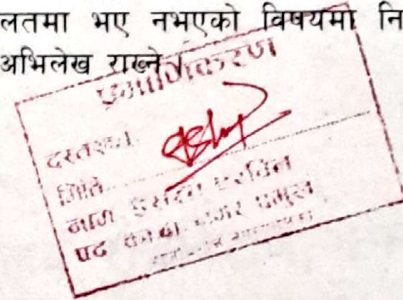 लतमा भए नभएको विषयमा नि
अभिलेख राख्ने
प्रमाणिकरण
दस्तखत
मिति
नाम
पद का.बा. नगर प्रमुख